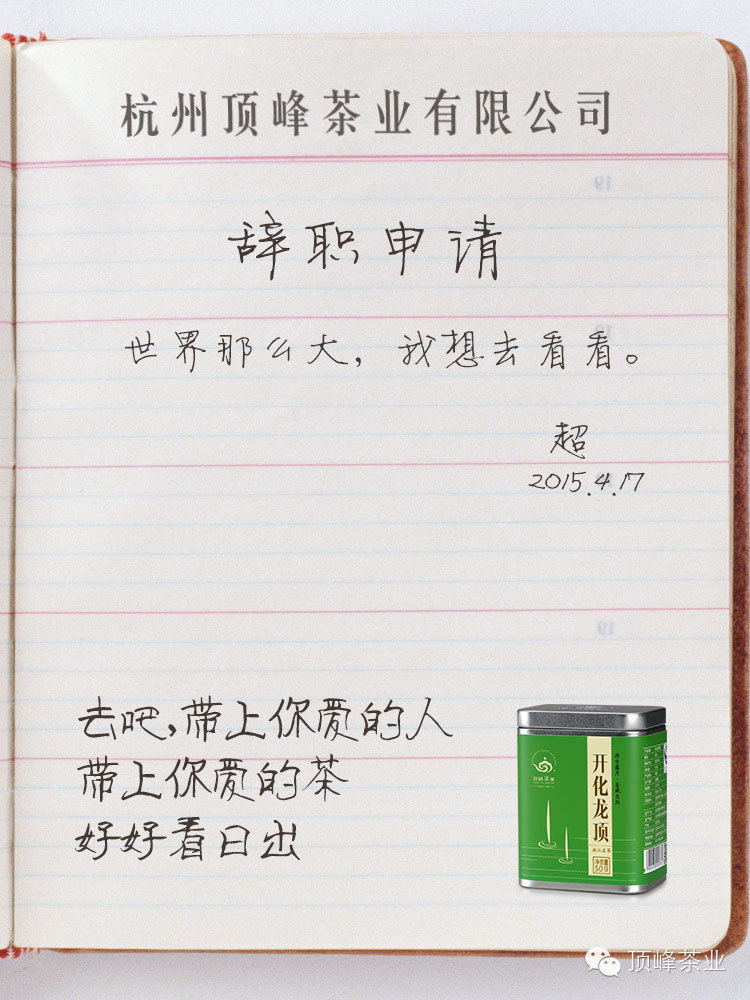 杭州顶峰茶业有限公司
辞职申请
世界那么大，我想去看看。
超
2015.4.17
去吧，带上你爱的人
带上你爱的茶
好好看日出
开化龙顶
浙江名茶
净含量
50g
顶峰茶业